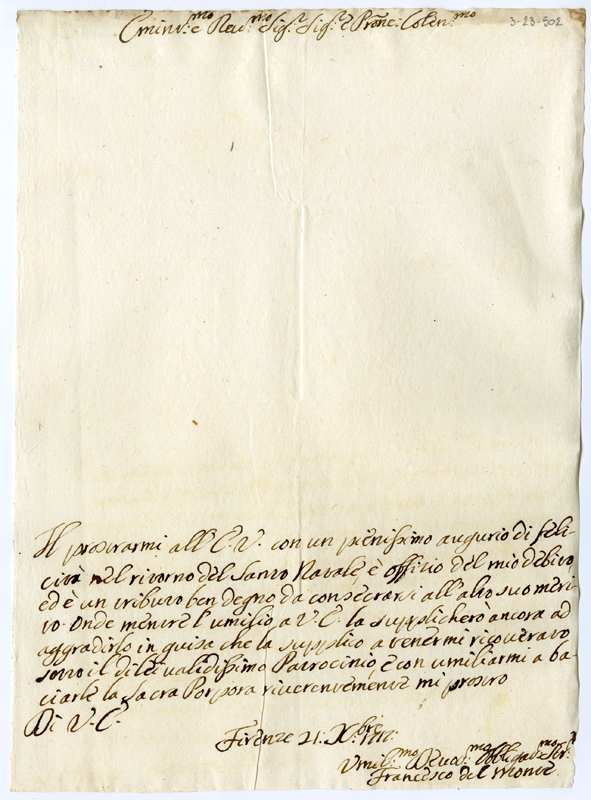 Emin.mo e Rev.mo Sig.r Sig.r e Pron.e Colen.mo
3-23-502
Il prostrarmi all'E.V. con un pienissimo augurio di feli-
cità nel ritorno del Santo Natale, è offitio del mio debito,
ed è un tributo ben degno da consecrarsi all'alto suo meri-
to. Onde mentre l'umilio, a V.E. la supplicherò ancora ad
aggradirlo in guisa che la supplico a tenermi ricoverato
sotto il di lei validissimo Patrocinio, e con umiliarmi a ba-
ciarle la Sacra Porpora riverentemente mi prostro
Di V.E.
Firenze 21: X.bre
Umil.mo Devo.mo Obbligat.mo Ser.r
Francesco del Monte